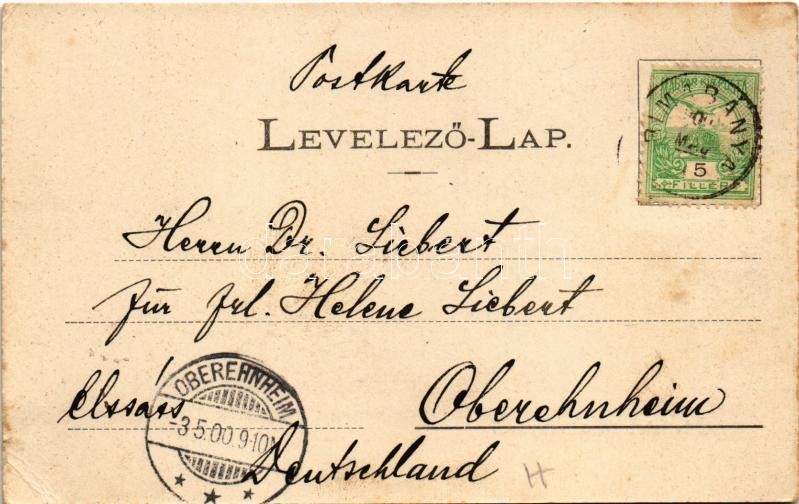 Postkarte
LEVELEZŐ-LAP.
MAGYAR KIR. POSTA
5
FILLÉR
Herrn Dr. Liebert
für Frl. Helene Liebert
Elsass
Oberehnheim
Deutschland
OBEREHNHEIM
-3.5.00.9-10N
H
darabanth